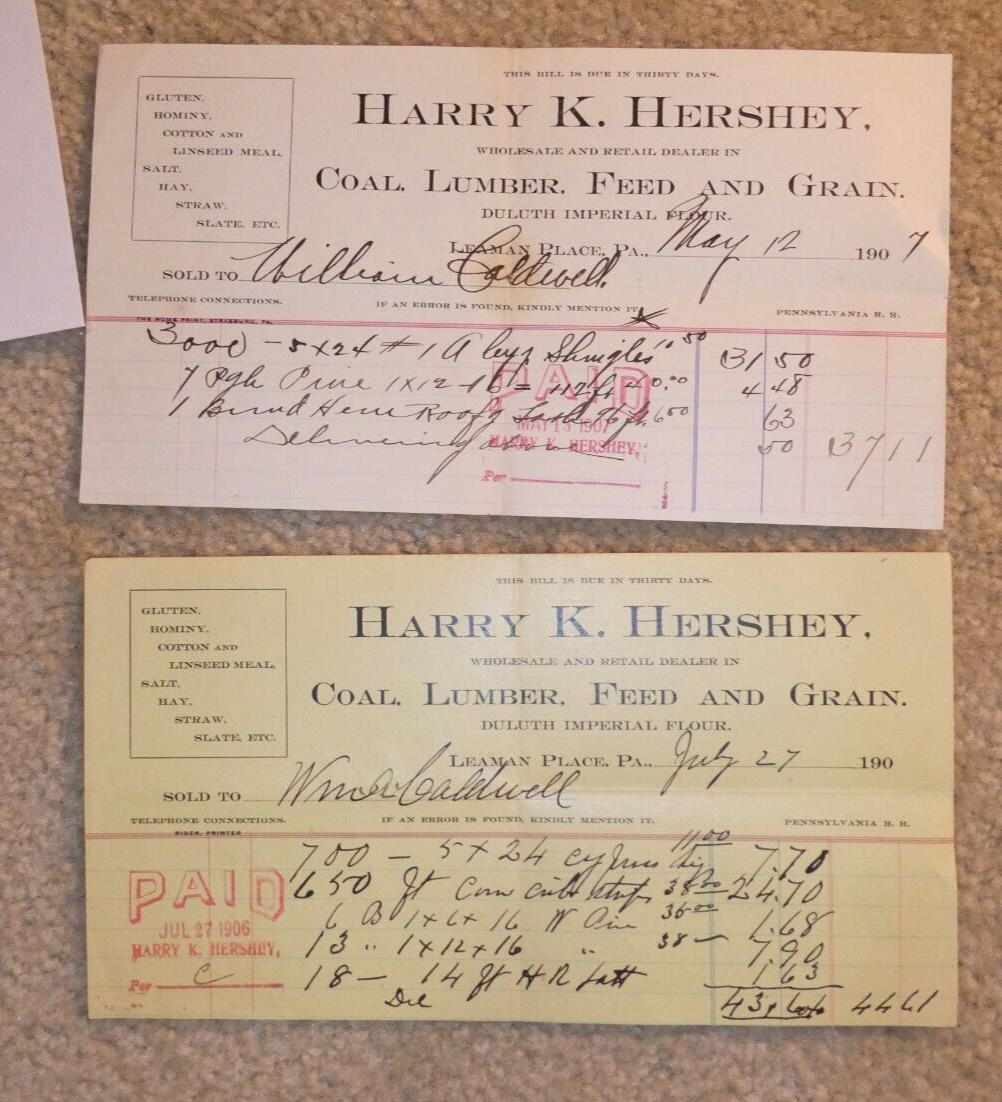 THIS BILL IS DUE IN THIRTY DAYS.
GLUTEN,
HOMINY,
COTTON AND
LINSEED MEAL,
SALT,
HAY,
STRAW,
SLATE, ETC.
HARRY K. HERSHEY,
WHOLESALE AND RETAIL DEALER IN
COAL, LUMBER, FEED AND GRAIN.
DULUTH IMPERIAL FLOUR.
LEAMAN PLACE, PA., May 12 1907
SOLD TO William Caldwell.
TELEPHONE CONNECTIONS. IF AN ERROR IS FOUND, KINDLY MENTION IT. PENNSYLVANIA R. R.
THE HOME PRINT, STRASBURG, PA.
3000 - 5 x 24 # 1 A Shingles 10 50 31 50
7 Pine 1 x 12 - 16 = 112 ft 40.00 4 48
1 Hem Roofg 6 50 63
Delivering 50 37 11
PAID
MAY 15 1907
HARRY K. HERSHEY,
Per
THIS BILL IS DUE IN THIRTY DAYS.
GLUTEN,
HOMINY,
COTTON AND
LINSEED MEAL,
SALT,
HAY,
STRAW,
SLATE, ETC.
HARRY K. HERSHEY,
WHOLESALE AND RETAIL DEALER IN
COAL, LUMBER, FEED AND GRAIN.
DULUTH IMPERIAL FLOUR.
LEAMAN PLACE, PA., July 27 190
SOLD TO Wm A Caldwell
TELEPHONE CONNECTIONS. IF AN ERROR IS FOUND, KINDLY MENTION IT. PENNSYLVANIA R. R.
RIGER, PRINTER
700 - 5 x 24 cypress 11.00 7.70
650 ft Corn crib strips 38 00 24.70
6 B 1 x 6 x 16 W Pine 36 00 1.68
13 " 1 x 12 x 16 " 38 - 7.90
18 - 14 ft H R Lath 1 63
Del 44 61
PAID
JUL 27 1906
HARRY K. HERSHEY,
Per C